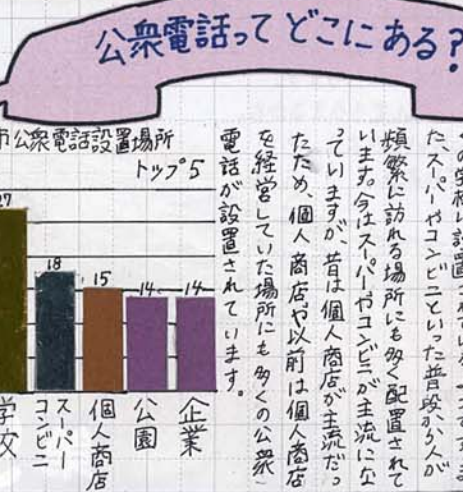 公衆電話って どこにある?
市公衆電話設置場所
トップ5
27
18
15
14
14
学校
スーパー
コンビニ
個人商店
公園
企業
の学校に設置されている
た、スーパーやコンビニといった普段から人が
頻繁に訪れる場所にも多く配置されて
います。今はスーパーやコンビニが主流にな
っていますが、昔は個人商店が主流だっ
たため、個人商店や以前は個人商店
を経営していた場所にも多くの公衆
電話が設置されています。